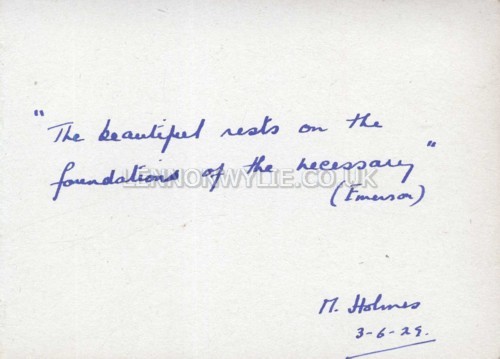 "The beautiful rests on the
foundations of the necessary"
LENNONWYLIE.CO.UK
(Emerson)
M. Holmes
3-6-29.